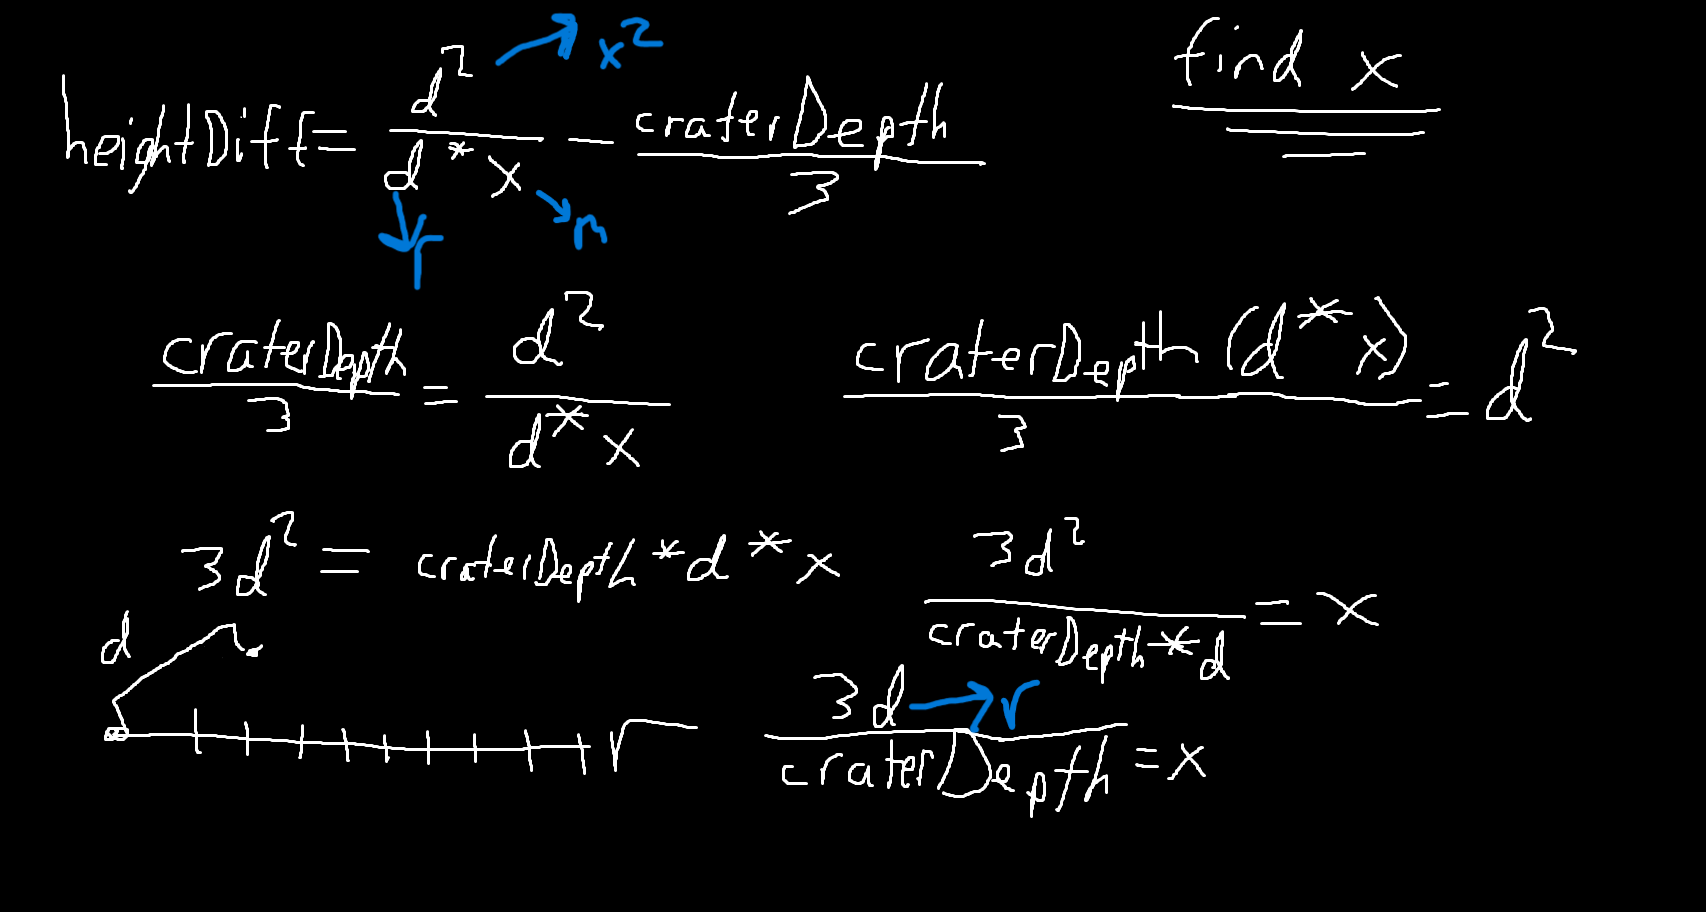 heightDiff = d² / d * x − craterDepth / 3
x²
r
m
find x
craterDepth / 3 = d² / d * x
craterDepth (d * x) / 3 = d²
3d² = craterDepth * d * x
3d² / craterDepth * d = x
d
r
3d / craterDepth = x
r